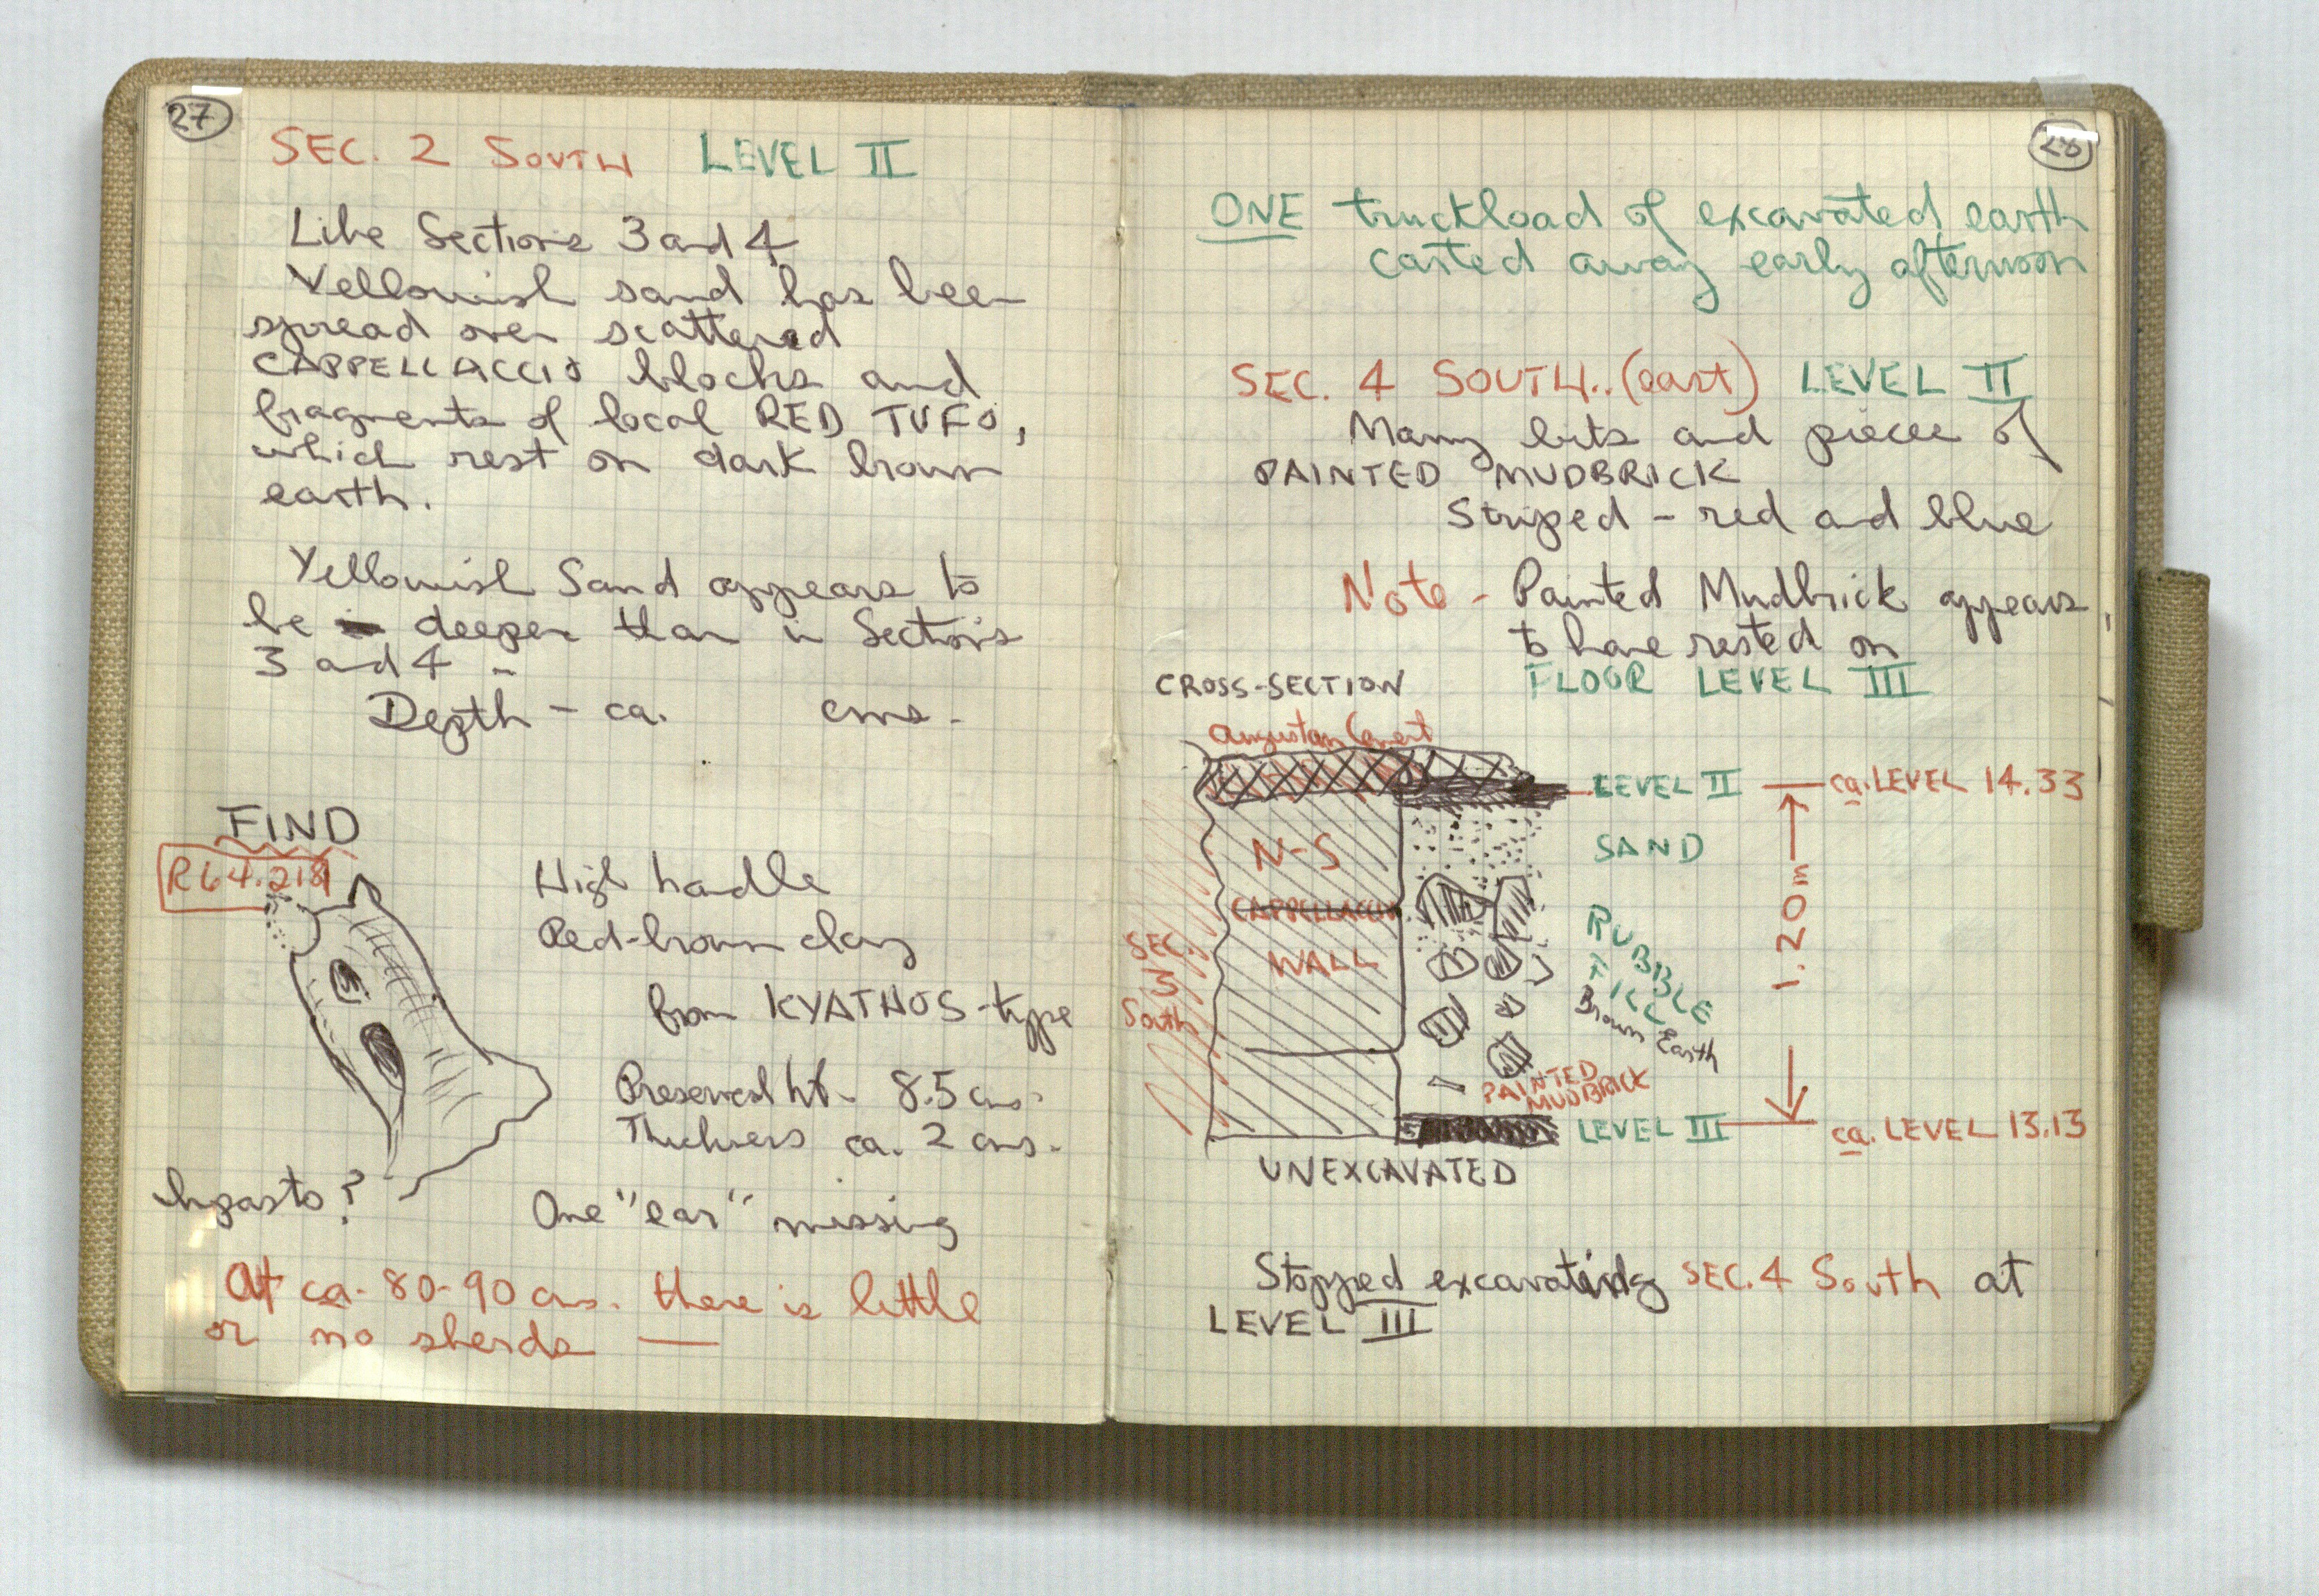 27
SEC. 2 SOUTH LEVEL II
Like Sections 3 and 4
Yellowish sand has been
spread over scattered
CAPPELLACCIO blocks and
fragments of local RED TUFO,
which rest on dark brown
earth.
Yellowish Sand appears to
be deeper than in Sections
3 and 4 -
Depth - ca. cms.
FIND
R64.218
High handle
Red-brown clay
from KYATHOS-type
Preserved ht. 8.5 cms.
Thickness ca. 2 cms.
impasto?
One "ear" missing
At ca. 80-90 cms. there is little
or no sherds —
28
ONE truckload of excavated earth
carted away early afternoon
SEC. 4 SOUTH..(east) LEVEL II
Many bits and pieces of
PAINTED MUDBRICK
Striped - red and blue
Note - Painted Mudbrick appears
to have rested on
FLOOR LEVEL III
CROSS-SECTION
Augustan Cement
LEVEL II — ca. LEVEL 14.33
N-S
CAPPELLACCIO
WALL
SAND
1.20 m
SEC.
3
South
RUBBLE
FILL
Brown Earth
PAINTED
MUDBRICK
LEVEL III — ca. LEVEL 13.13
UNEXCAVATED
Stopped excavating SEC. 4 South at
LEVEL III